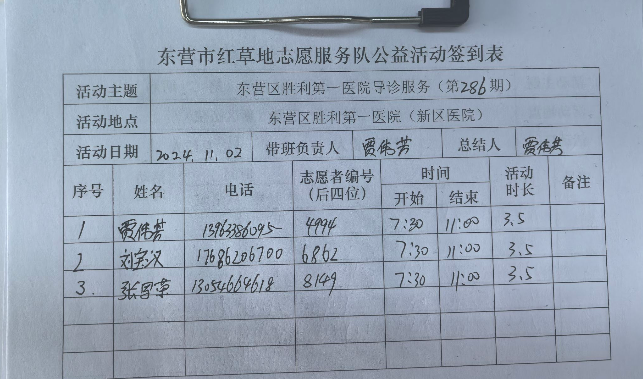 东营市红草地志愿服务队公益活动签到表
活动主题 东营区胜利第一医院导诊服务（第286期）
活动地点 东营区胜利第一医院（新区医院）
活动日期 2024.11.02 带班负责人 贾伟芳 总结人 贾伟芳
序号 姓名 电话 志愿者编号（后四位） 时间 开始 结束 活动时长 备注
1 贾伟芳 13963386095 4994 7:30 11:00 3.5
2 刘宗汉 17686206700 6862 7:30 11:00 3.5
3. 张国荣 13054664618 8149 7:30 11:00 3.5